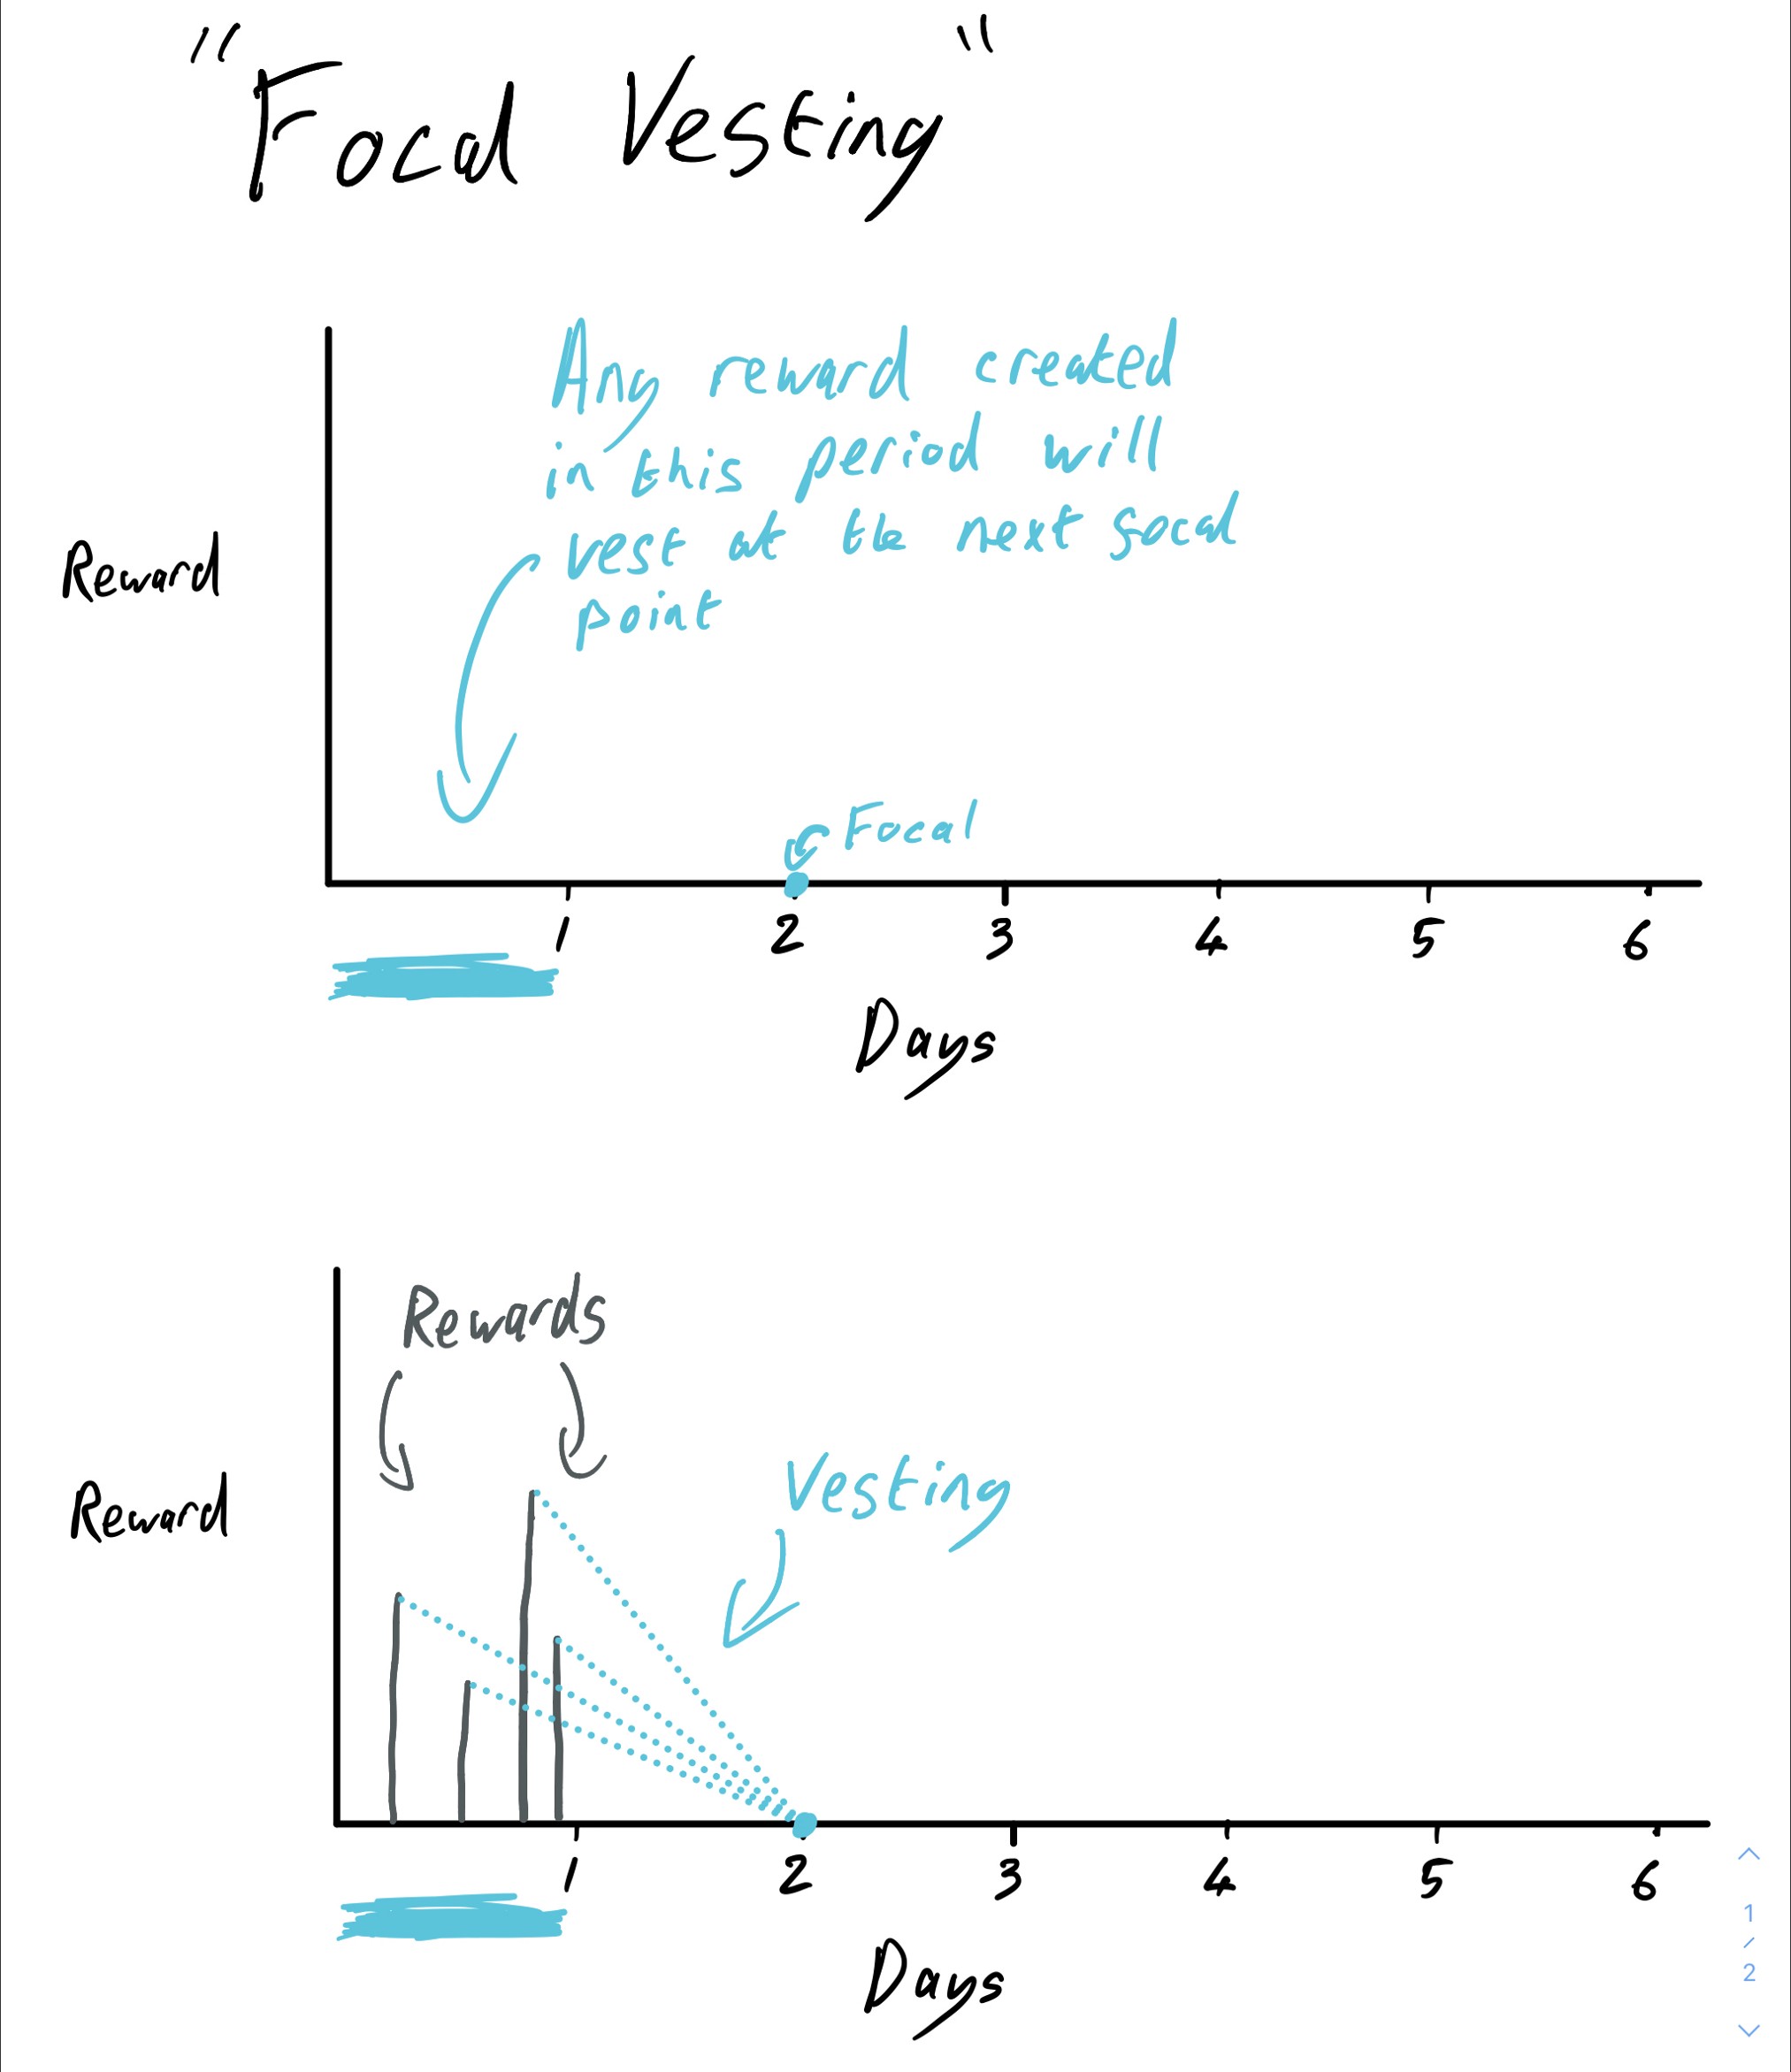 "Focal Vesting"
Any reward created
in this period will
vest at the next focal
point
Reward
Focal
1 2 3 4 5 6
Days
Rewards
Vesting
Reward
1 2 3 4 5 6
Days
1
/
2